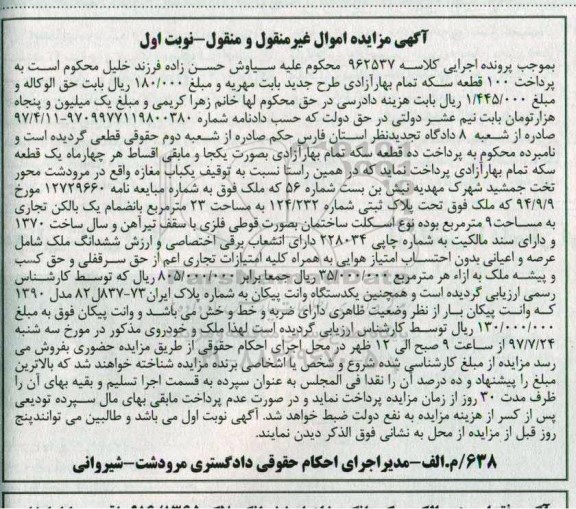 آگهی مزایده اموال غیرمنقول و منقول-نوبت اول
بموجب پرونده اجرایی کلاسه ۹۶۲۵۳۷ محکوم علیه سیاوش حسن زاده فرزند خلیل محکوم است به
پرداخت ۱۰۰ قطعه سکه تمام بهارآزادی طرح جدید بابت مهریه و مبلغ ۱۸۰/۰۰۰ ریال بابت حق الوکاله و
مبلغ ۱/۴۴۵/۰۰۰ ریال بابت هزینه دادرسی در حق محکوم لها خانم زهرا کریمی و مبلغ یک میلیون و پنجاه
هزارتومان بابت نیم عشر دولتی در حق دولت که حسب دادنامه شماره ۹۷۰۹۹۷۷۱۱۹۸۰۰۳۸۰-۹۷/۴/۱۱
صادره از شعبه ۸ دادگاه تجدیدنظر استان فارس حکم صادره از شعبه دوم حقوقی قطعی گردیده است و
نامبرده محکوم به پرداخت ده قطعه سکه تمام بهارآزادی بصورت یکجا و مابقی اقساط هر چهارماه یک قطعه
سکه تمام بهارآزادی پرداخت نماید که در همین راستا نسبت به توقیف یکباب مغازه واقع در مرودشت محور
تخت جمشید شهرک مهدیه نبش بن بست شماره ۵۶ که ملک فوق به شماره مبایعه نامه ۱۲۷۲۹۶۶۰ مورخ
۹۴/۹/۹ که ملک فوق تحت پلاک ثبتی شماره ۱۲۴/۲۳۲ به مساحت ۲۳ مترمربع بانضمام یک بالکن تجاری
به مساحت ۹ مترمربع بوده نوع اسکلت ساختمان بصورت قوطی فلزی با سقف تیرآهن و سال ساخت ۱۳۷۰
و دارای سند مالکیت به شماره چاپی ۲۲۸۰۳۴ دارای انشعاب برقی اختصاصی و ارزش ششدانگ ملک شامل
عرصه و اعیانی بدون احتساب امتیاز هوایی به همراه کلیه امتیازات تجاری اعم از حق سرقفلی و حق کسب
و پیشه ملک به ازاء هر مترمربع ۳۵/۰۰۰/۰۰۰ ریال جمعا برابر ۸۰۵/۰۰۰/۰۰۰ ریال که توسط کارشناس
رسمی ارزیابی گردیده است و همچنین یکدستگاه وانت پیکان به شماره پلاک ایران۷۳-۸۳۷ل۸۲ مدل ۱۳۹۰
که وانت پیکان بار از نظر وضعیت ظاهری دارای ضربه و خط و خش می باشد و وانت پیکان فوق به مبلغ
۱۳۰/۰۰۰/۰۰۰ ریال توسط کارشناس ارزیابی گردیده است لهذا ملک و خودروی مذکور در مورخ سه شنبه
۹۷/۷/۲۴ از ساعت ۹ صبح الی ۱۲ ظهر در محل اجرای احکام حقوقی از طریق مزایده حضوری بفروش می
رسد مزایده از مبلغ کارشناسی شده شروع و شخص یا اشخاصی برنده مزایده شناخته خواهند شد که بالاترین
مبلغ را پیشنهاد و ده درصد آن را نقدا فی المجلس به عنوان سپرده به قسمت اجرا تسلیم و بقیه بهای آن را
ظرف مدت ۳۰ روز از زمان مزایده پرداخت نماید و در صورت عدم پرداخت مابقی بهای مال سپرده تودیعی
پس از کسر از هزینه مزایده به نفع دولت ضبط خواهد شد. آگهی نوبت اول می باشد و طالبین می توانندپنج
روز قبل از مزایده از محل به نشانی فوق الذکر دیدن نمایند.
۶۳۸/م.الف-مدیراجرای احکام حقوقی دادگستری مرودشت-شیروانی